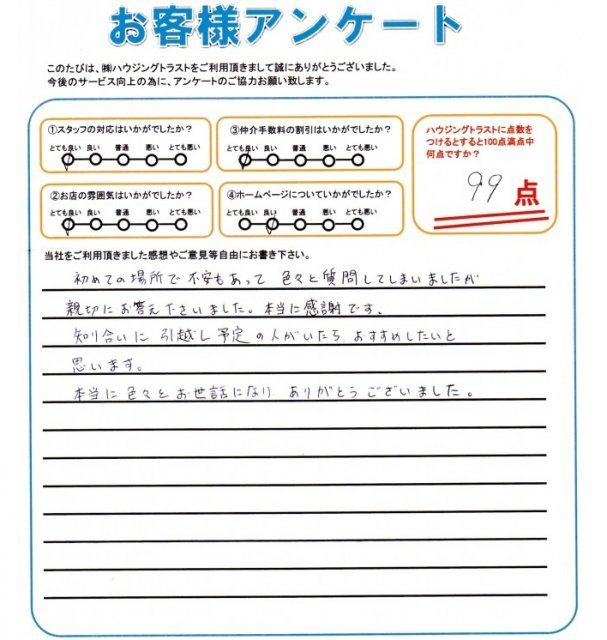 お客様アンケート
このたびは、㈱ハウジングトラストをご利用頂きまして誠にありがとうございました。
今後のサービス向上の為に、アンケートのご協力お願い致します。
①スタッフの対応はいかがでしたか？
とても良い 良い 普通 悪い とても悪い
③仲介手数料の割引はいかがでしたか？
とても良い 良い 普通 悪い とても悪い
②お店の雰囲気はいかがでしたか？
とても良い 良い 普通 悪い とても悪い
④ホームページについていかがでしたか？
とても良い 良い 普通 悪い とても悪い
ハウジングトラストに点数を
つけるとすると100点満点中
何点ですか？
99 点
当社をご利用頂きました感想やご意見等自由にお書き下さい。
初めての場所で不安もあって 色々と質問してしまいましたが
親切にお答え下さいました。本当に感謝です。
知り合いに引越し予定の人がいたら、おすすめしたいと
思います。
本当に色々とお世話になり、ありがとうございました。